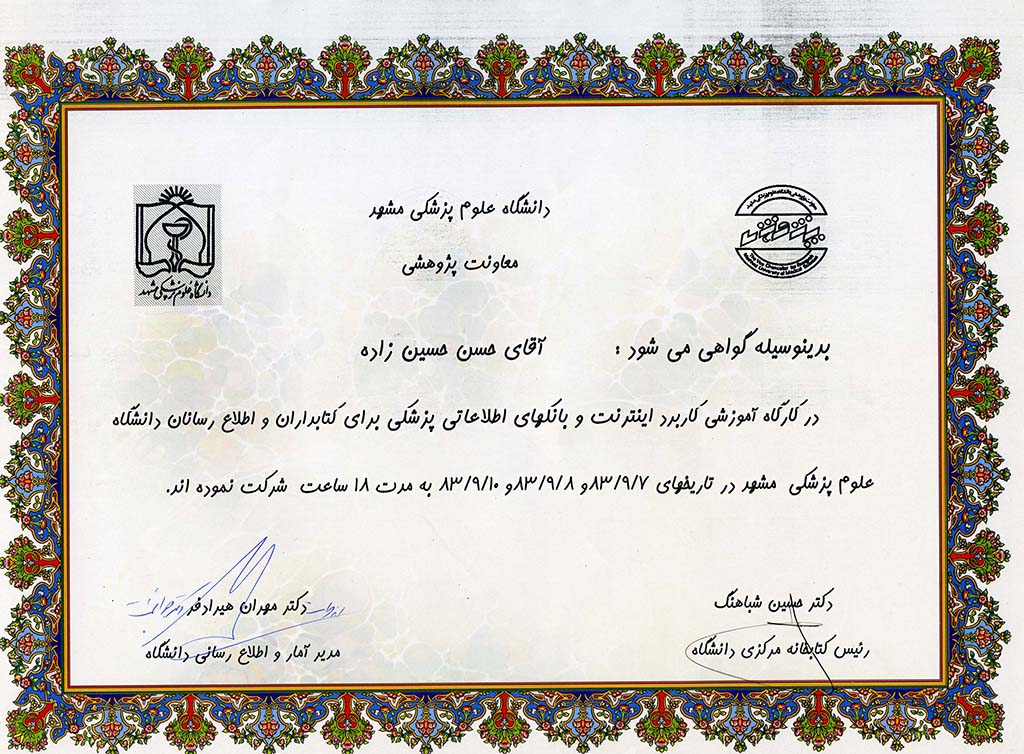 دانشگاه علوم پزشکی مشهد
معاونت پژوهشی
دانشگاه علوم پزشکی مشهد
بدینوسیله گواهی می شود : آقای حسن حسین زاده
در کارگاه آموزشی کاربرد اینترنت و بانکهای اطلاعاتی پزشکی برای کتابداران و اطلاع رسانان دانشگاه
علوم پزشکی مشهد در تاریخهای ۸۳/۹/۷و ۸۳/۹/۸و ۸۳/۹/۱۰ به مدت ۱۸ ساعت شرکت نموده اند.
دکتر حسین شباهنگ
رئیس کتابخانه مرکزی دانشگاه
دکتر مهران هیرادفر
مدیر آمار و اطلاع رسانی دانشگاه